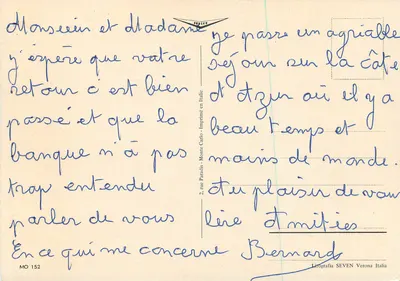 Monsieur et Madame
j'éspère que vatre
retour c'est bien
passé et que la
banque n'à pas
trap entendu
parler de vous
En ce qui me concerne
je passe un agriable
séjour sur la câte
d Azur où il y a
beau temps et
mains de monde.
Au plaisir de vau
lire Amitiés
Bernard
MO 152
2, rue Pastelle - Monte-Carlo - Imprimé en Italie
Litografia SEVEN Verona Italia